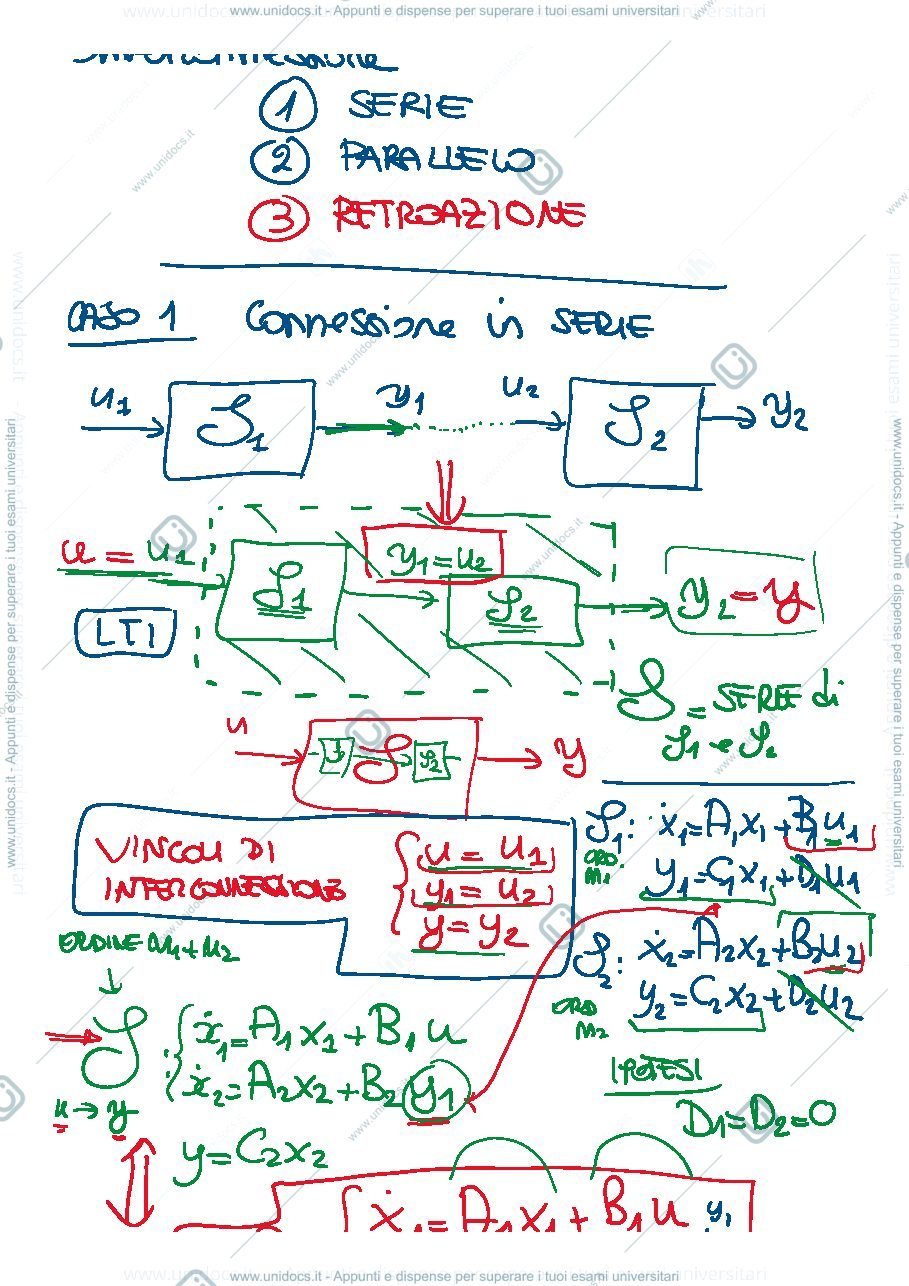 www.unidocs.it - Appunti e dispense per superare i tuoi esami universitari
1 SERIE
2 PARALLELO
3 RETROAZIONE
CASO 1 Connessione in SERIE
u1 S1 y1 u2 S2 y2
y1 = u2
u = u1 S1 S2 y2 = y
LTI
S = SERIE di
S1 e S2
u S1 S S2 y
VINCOLI DI
INTERCONNESSIONE
u = u1
y1 = u2
y = y2
S1: ẋ1 = A1x1 + B1u1
ORD. n1
y1 = C1x1 + D1u1
S2: ẋ2 = A2x2 + B2u2
ORD n2
y2 = C2x2 + D2u2
IPOTESI
D1 = D2 = 0
ORDINE n1 + n2
S
ẋ1 = A1x1 + B1u
ẋ2 = A2x2 + B2 y1
u → y
y = C2x2
ẋ1 = A1x1 + B1u y1
www.unidocs.it - Appunti e dispense per superare i tuoi esami universitari